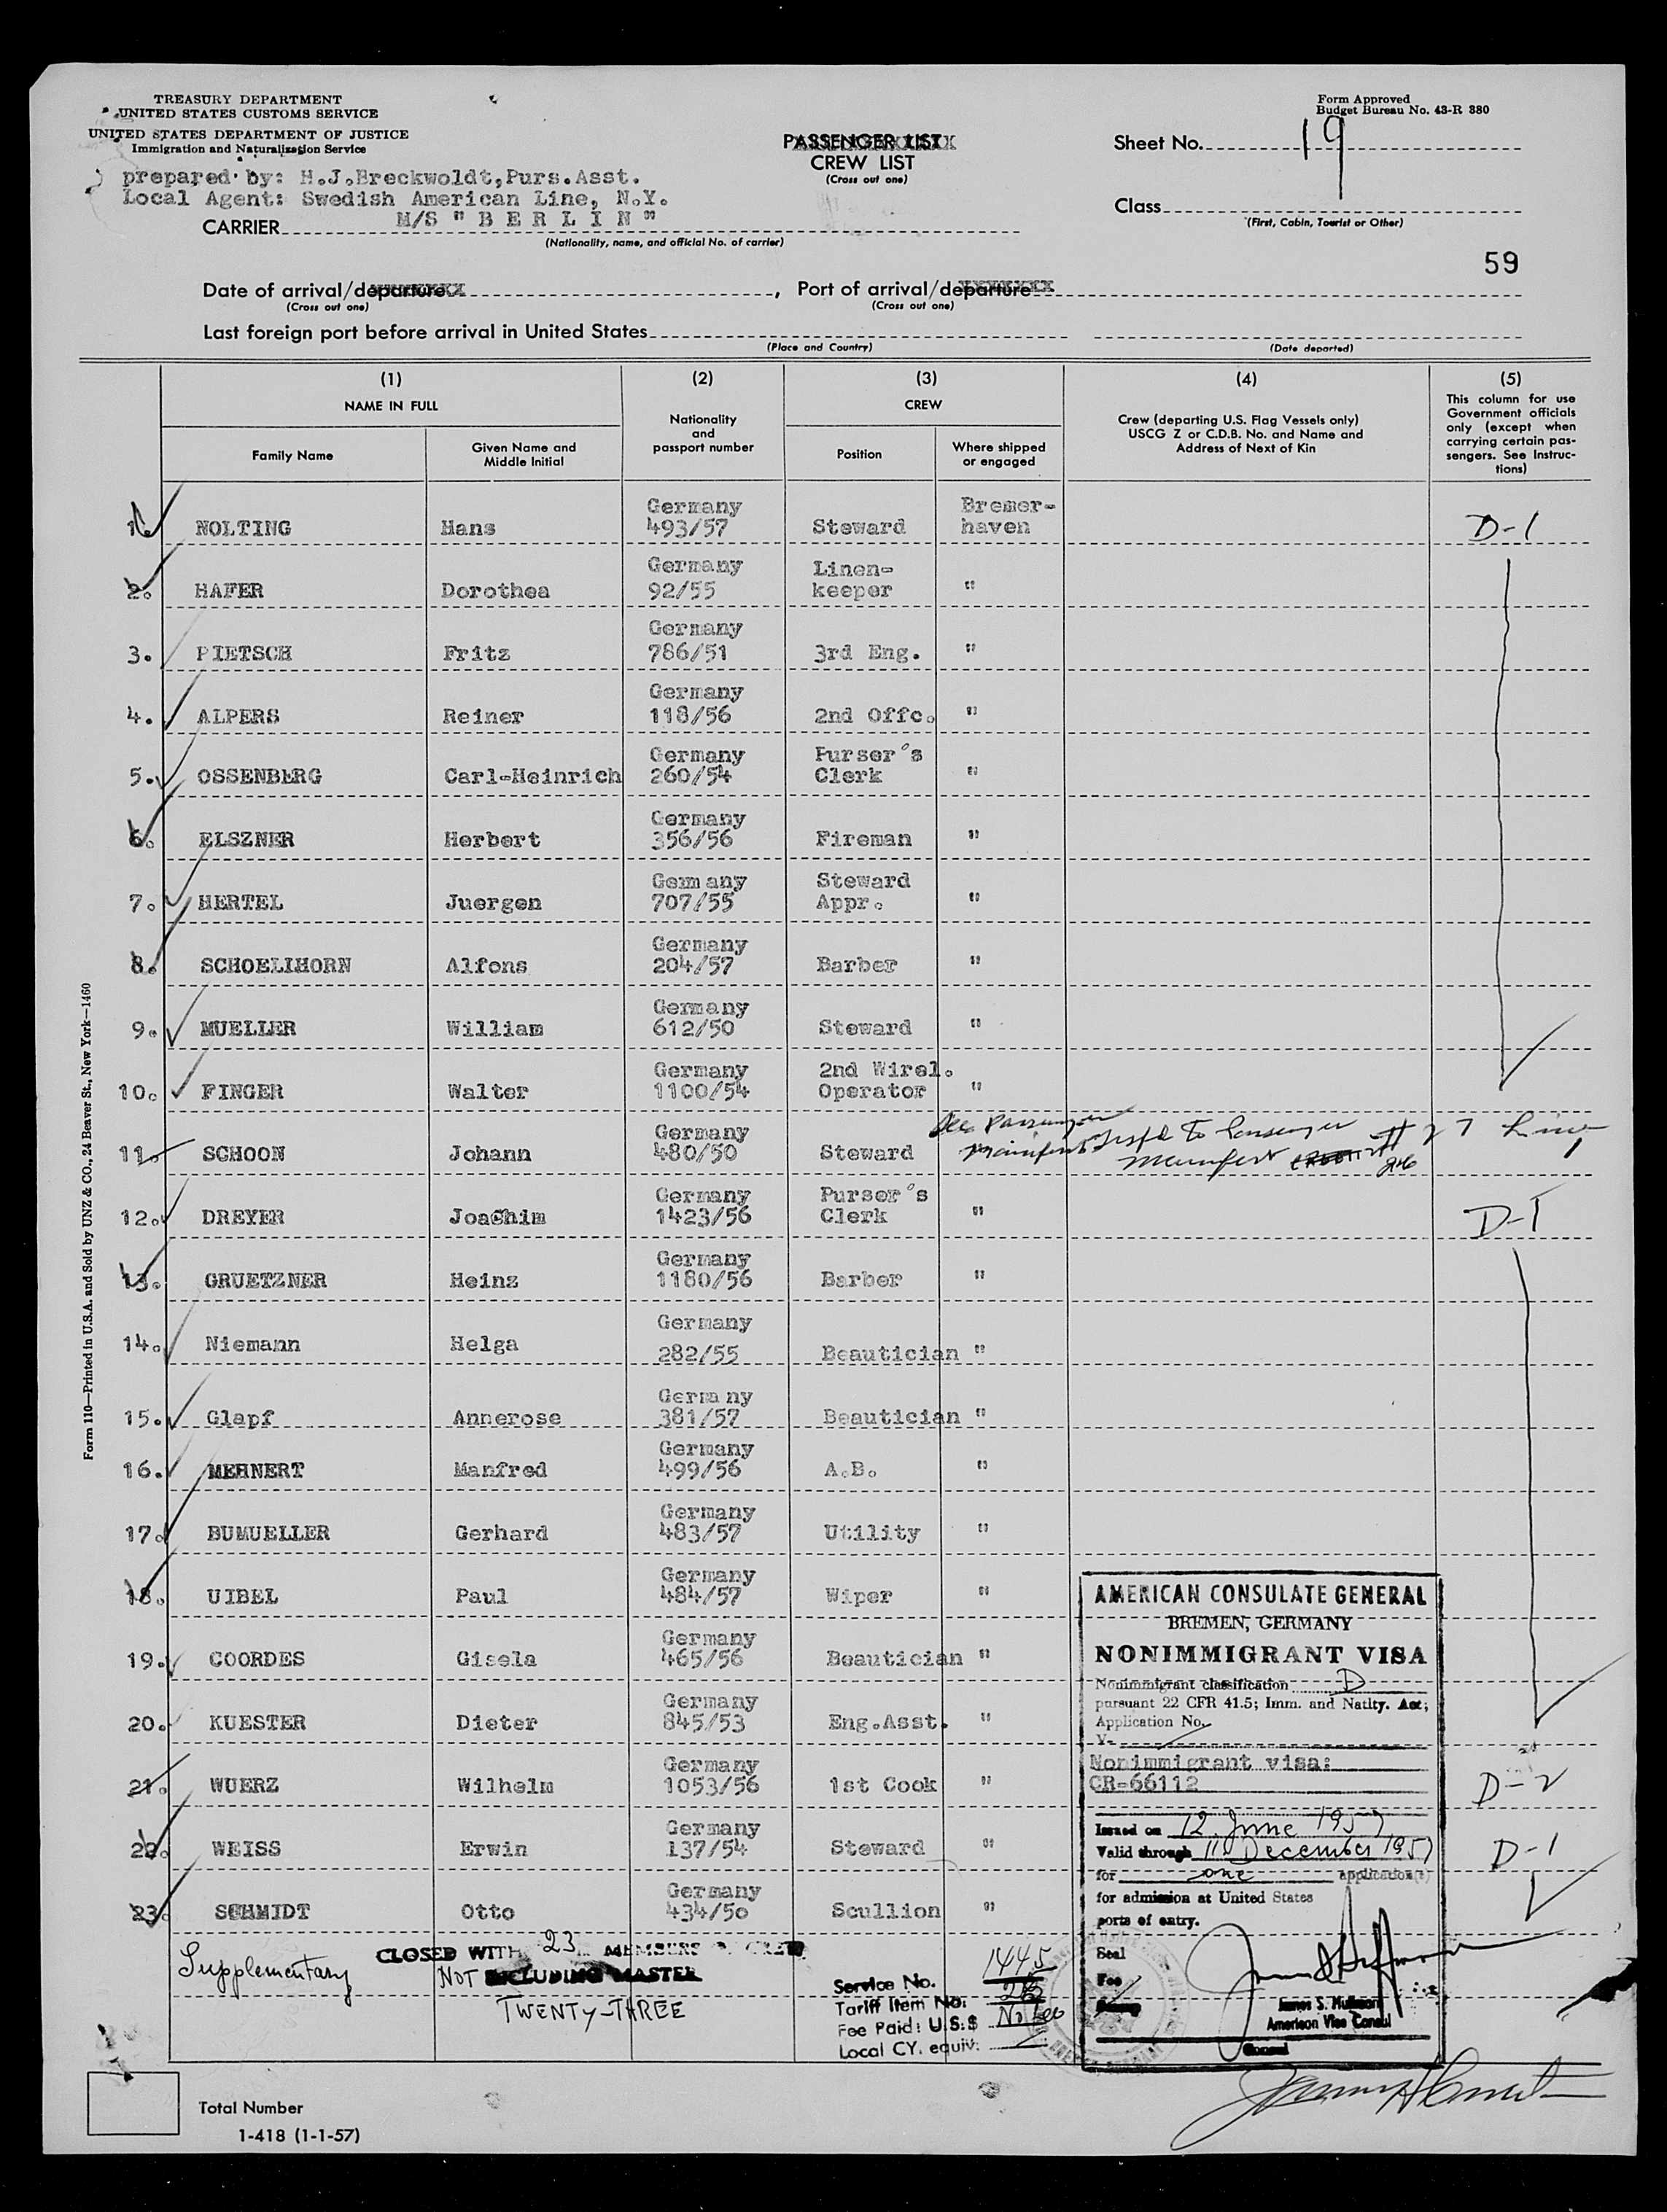 TREASURY DEPARTMENT
UNITED STATES CUSTOMS SERVICE
UNITED STATES DEPARTMENT OF JUSTICE
Immigration and Naturalization Service
Form Approved
Budget Bureau No. 43-R 380
PASSENGER LIST
CREW LIST
(Cross out one)
Sheet No. 19
prepared by: H.J.Breckwoldt,Purs.Asst.
Local Agent: Swedish American Line, N.Y.
CARRIER M/S "B E R L I N"
(Nationality, name, and official No. of carrier)
Class
(First, Cabin, Tourist or Other)
59
Date of arrival/departure , Port of arrival/departure
(Cross out one) (Cross out one)
Last foreign port before arrival in United States
(Place and Country) (Date departed)
(1) (2) (3) (4) (5)
NAME IN FULL
Family Name
Given Name and
Middle Initial
Nationality
and
passport number
CREW
Position
Where shipped
or engaged
Crew (departing U.S. Flag Vessels only)
USCG Z or C.D.B. No. and Name and
Address of Next of Kin
This column for use
Government officials
only (except when
carrying certain pas-
sengers. See Instruc-
tions)
Germany Bremer-
1. NOLTING Hans 493/57 Steward haven D-1
Germany Linen-
2. HAFER Dorothea 92/55 keeper "
Germany
3. PIETSCH Fritz 786/51 3rd Eng. "
Germany
4. ALPERS Reiner 118/56 2nd Offc. "
Germany Purser's
5. OSSENBERG Carl-Heinrich 260/54 Clerk "
Germany
6. ELSZNER Herbert 356/56 Fireman "
Germ any Steward
7. HERTEL Juergen 707/55 Appr. "
Germany
8. SCHOELLHORN Alfons 204/57 Barber "
Germany
9. MUELLER William 612/50 Steward "
Germany 2nd Wirel.
10. FINGER Walter 1100/54 Operator "
Germany See Passenger
11. SCHOON Johann 480/50 Steward manifest Trsfd to Passenger
Manifest # 27 Line
Germany Purser's
12. DREYER Joachim 1423/56 Clerk " D-1
Germany
13. GRUETZNER Heinz 1180/56 Barber "
Germany
14. Niemann Helga 282/55 Beautician "
Germa ny
15. Glapf Annerose 381/57 Beautician "
Germany
16. MEHNERT Manfred 499/56 A.B. "
Germany
17. BUMUELLER Gerhard 483/57 Utility "
Germany
18. UIBEL Paul 484/57 Wiper "
Germany
19. COORDES Gisela 465/56 Beautician "
Germany
20. KUESTER Dieter 845/53 Eng.Asst. "
Germany
21. WUERZ Wilhelm 1053/56 1st Cook " D-2
Germany
22. WEISS Erwin 137/54 Steward " D-1
Germany
23. SCHMIDT Otto 434/50 Scullion "
AMERICAN CONSULATE GENERAL
BREMEN, GERMANY
NONIMMIGRANT VISA
Nonimmigrant classification D
pursuant 22 CFR 41.5; Imm. and Natlty. Act;
Application No.
V-
Nonimmigrant visa:
CR-66112
Issued on 12. June 1957
Valid through 11 December 1957
for one application(s)
for admission at United States
ports of entry.
Seal
Fee
James S.
American Vice Consul
Consul
Supplementary
CLOSED WITH 23 MEMBERS OF CREW
NOT INCLUDING MASTER
TWENTY-THREE
Service No. 1445
Tariff Item No. 26
Fee Paid: U.S.$ No fee
Local CY. equiv:
Total Number
1-418 (1-1-57)
Form 110—Printed in U.S.A. and Sold by UNZ & CO., 24 Beaver St., New York—1460